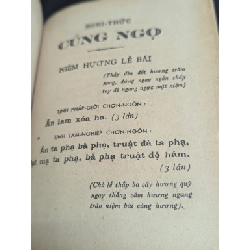 NGHI-THỨC
CÚNG NGỌ
NIỆM HƯƠNG LỄ BÁI
(Thắp đèn đốt hương trầm
xong, đứng ngay ngắn chắp
tay để ngang ngực mật niệm)
TỊNH PHÁP-GIỚI CHƠN-NGÔN:
Án lam xóa ha. (3 lần)
TỊNH TAM-NGHIỆP CHƠN-NGÔN:
Án ta phạ bà phạ, truật đà ta phạ,
đạt mạ ta phạ, bà phạ truật độ hám.
(3 lần)
(Chủ lễ thắp ba cây hương quỳ
ngay thẳng cầm hương ngang
trán niệm bài cúng hương).